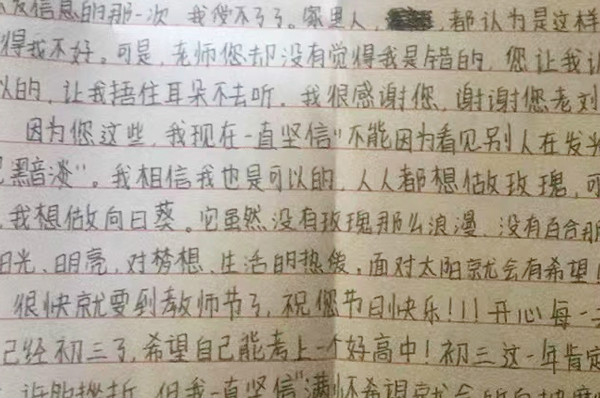 发信息的那一次 我受不了了。家里人, 都认为是这样
得我不好。可是,老师您却没有觉得我是错的,您让我认
以的,让我捂住耳朵不去听。我很感谢您,谢谢您老刘
因为您这些,我现在一直坚信"不能因为看见别人在发光
黑暗淡"。我相信我也是可以的,人人都想做玫瑰,可
我想做向日葵。它虽然没有玫瑰那么浪漫、没有百合那
阳光、明亮、对梦想、生活的热爱,面对太阳就会有希望!
很快就要到教师节了,祝您节日快乐!!!开心每一天
已经初三了,希望自己能考上一个好高中!初三这一年肯定
许的挫折,但我一直坚信"满怀希望就会